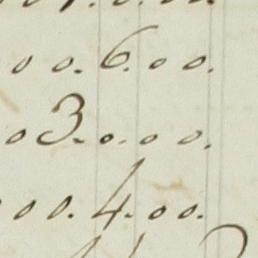 00.6.00.
03.0.00.
000.4.00.